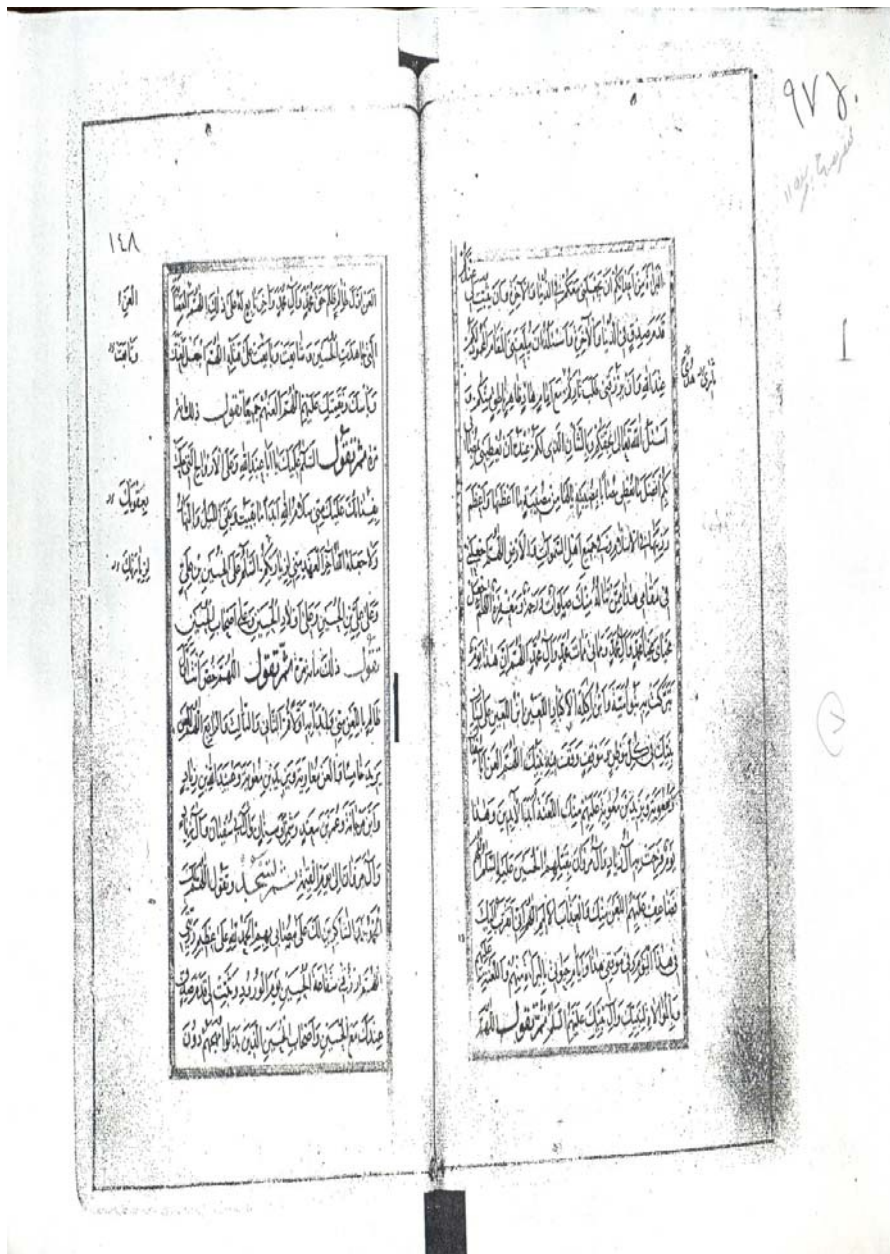 ٩٧٤٠
البراءة من اعدائكم ان يجعلني معكم في الدنيا والآخرة وان يثبت لي عندكم
قدم صدق في الدنيا والآخرة واسئله ان يبلغني المقام المحمود لكم
عند الله وان يرزقني طلب ثاركم مع امام ظاهر ناطق منكم و
اسئل الله تعالى بحقكم وبالشأن الذي لكم عنده ان يعطيني بمصابي
بكم افضل ما يعطي مصابا بمصيبته يا لها من مصيبة ما اعظمها واعظم
رزيتها في الاسلام وفي جميع اهل السموات والارض اللهم اجعلني
في مقامي هذا ممن تناله منك صلوات ورحمة ومغفرة اللهم اجعل
محياي محيا محمد وآل محمد ومماتي ممات محمد وآل محمد اللهم ان هذا يوم
تبركت به بنو امية وابن آكلة الاكباد اللعين ابن اللعين على لسان
نبيك في كل موطن وموقف وقف فيه نبيك اللهم العن ابا سفيان
ومعوية ويزيد بن معوية عليهم منك اللعنة ابد الآبدين وهذا
يوم فرحت به آل زياد وآل مروان بقتلهم الحسين عليه السلم اللهم
فضاعف عليهم اللعن منك والعذاب الاليم اللهم اني اتقرب اليك
في هذا اليوم وفي موقفي هذا وايام حيوتي بالبراءة منهم واللعنة عليهم
وبالموالاة لنبيك وآل نبيك عليهم السلم ثم تقول اللهم
١٤٨
العن اول ظالم ظلم حق محمد وآل محمد وآخر تابع له على ذلك اللهم العن العصابة
التي جاهدت الحسين وشايعت وبايعت على قتله اللهم
وبأسك ونقمتك عليهم اللهم العنهم جميعا تقول ذلك مائة
مرة ثم تقول السلم عليك يا ابا عبد الله وعلى الارواح التي حلت
بفنائك عليك مني سلام الله ابدا ما بقيت وبقي الليل والنهار
ولا جعله الله آخر العهد مني لزيارتكم السلم على الحسين وعلى
وعلى علي بن الحسين وعلى اولاد الحسين وعلى اصحاب الحسين
تقول ذلك مائة مرة ثم تقول اللهم خص انت
ظالم باللعن مني وابدأ به اولا ثم الثاني والثالث والرابع اللهم العن
يزيد خامسا والعن معاوية ويزيد بن معوية وعبيد الله بن زياد
وابن مرجانة وعمر بن سعد وشمرا وسنان وآل ابي سفيان وآل زياد
وآل مروان الى يوم القيمة ثم تسجد وتقول اللهم لك
الحمد حمد الشاكرين لك على مصابي بهم الحمد لله على عظيم رزيتي
اللهم ارزقني شفاعة الحسين يوم الورود وثبت لي قدم صدق
عندك مع الحسين واصحاب الحسين الذين بذلوا مهجهم دون
العن
وتابعت
بعقوبك
لزيارتك